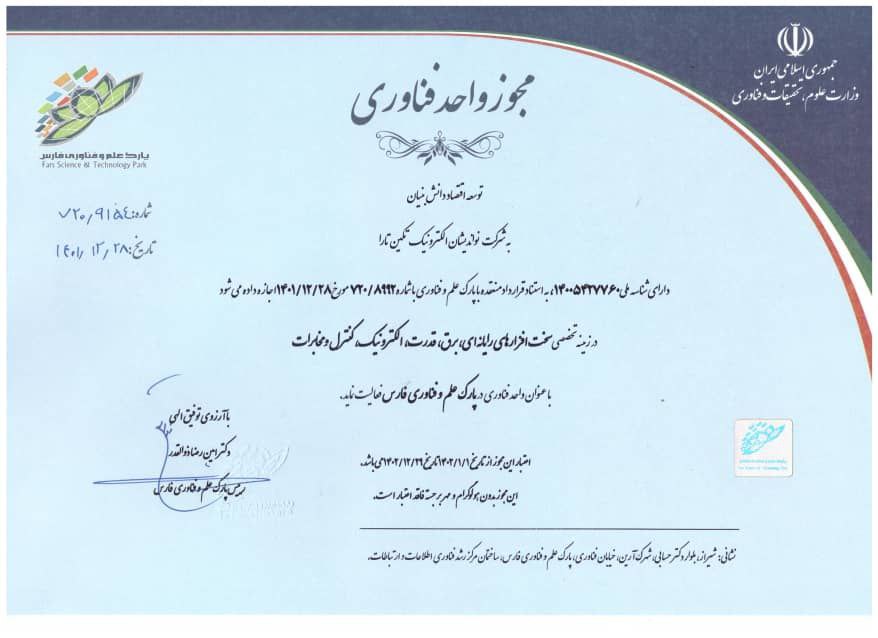 جمهوری اسلامی ایران
وزارت علوم، تحقیقات و فناوری
پارک علم و فناوری فارس
Fars Science & Technology Park
مجوز واحد فناوری
شماره: ۷۲۰٫۹۱۵۴
تاریخ: ۱۴۰۱٫۱۲٫۲۸
توسعه اقتصاد دانش بنیان
به شرکت نواندیشان الکترونیک تکین تارا
دارای شناسه ملی ۱۴۰۰۵۴۲۷۷۶۰، به استناد قرارداد منعقده با پارک علم و فناوری با شماره ۷۲۰/۸۹۹۲ مورخ ۱۴۰۱/۱۲/۲۸ اجازه داده می شود
در زمینه تخصصی سخت افزارهای رایانه ای، برق، قدرت، الکترونیک، کنترل و مخابرات
با عنوان واحد فناوری در پارک علم و فناوری فارس فعالیت نماید.
با آرزوی توفیق الهی
دکتر امین رضا ذوالقدر
رییس پارک علم و فناوری فارس
اعتبار این مجوز از تاریخ ۱۴۰۲/۱/۱ تا تاریخ ۱۴۰۲/۱۲/۲۹ می باشد.
این مجوز بدون هولوگرام و مهر برجسته فاقد اعتبار است.
نشانی: شیراز، بلوار دکتر حسابی، شهرک آرین، خیابان فناوری، پارک علم و فناوری فارس، ساختمان مرکز رشد فناوری اطلاعات و ارتباطات.